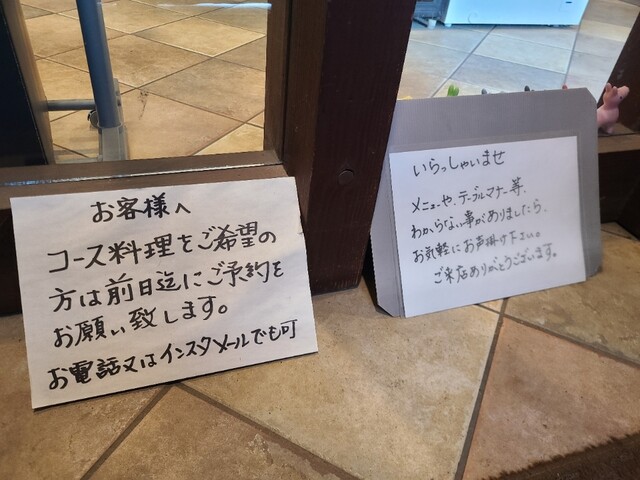 お客様へ
コース料理をご希望の
方は前日迄にご予約を
お願い致します。
お電話又はインスタメールでも可
いらっしゃいませ
メニューや、テーブルマナー等、
わからない事がありましたら、
お気軽にお声掛け下さい。
ご来店ありがとうございます。